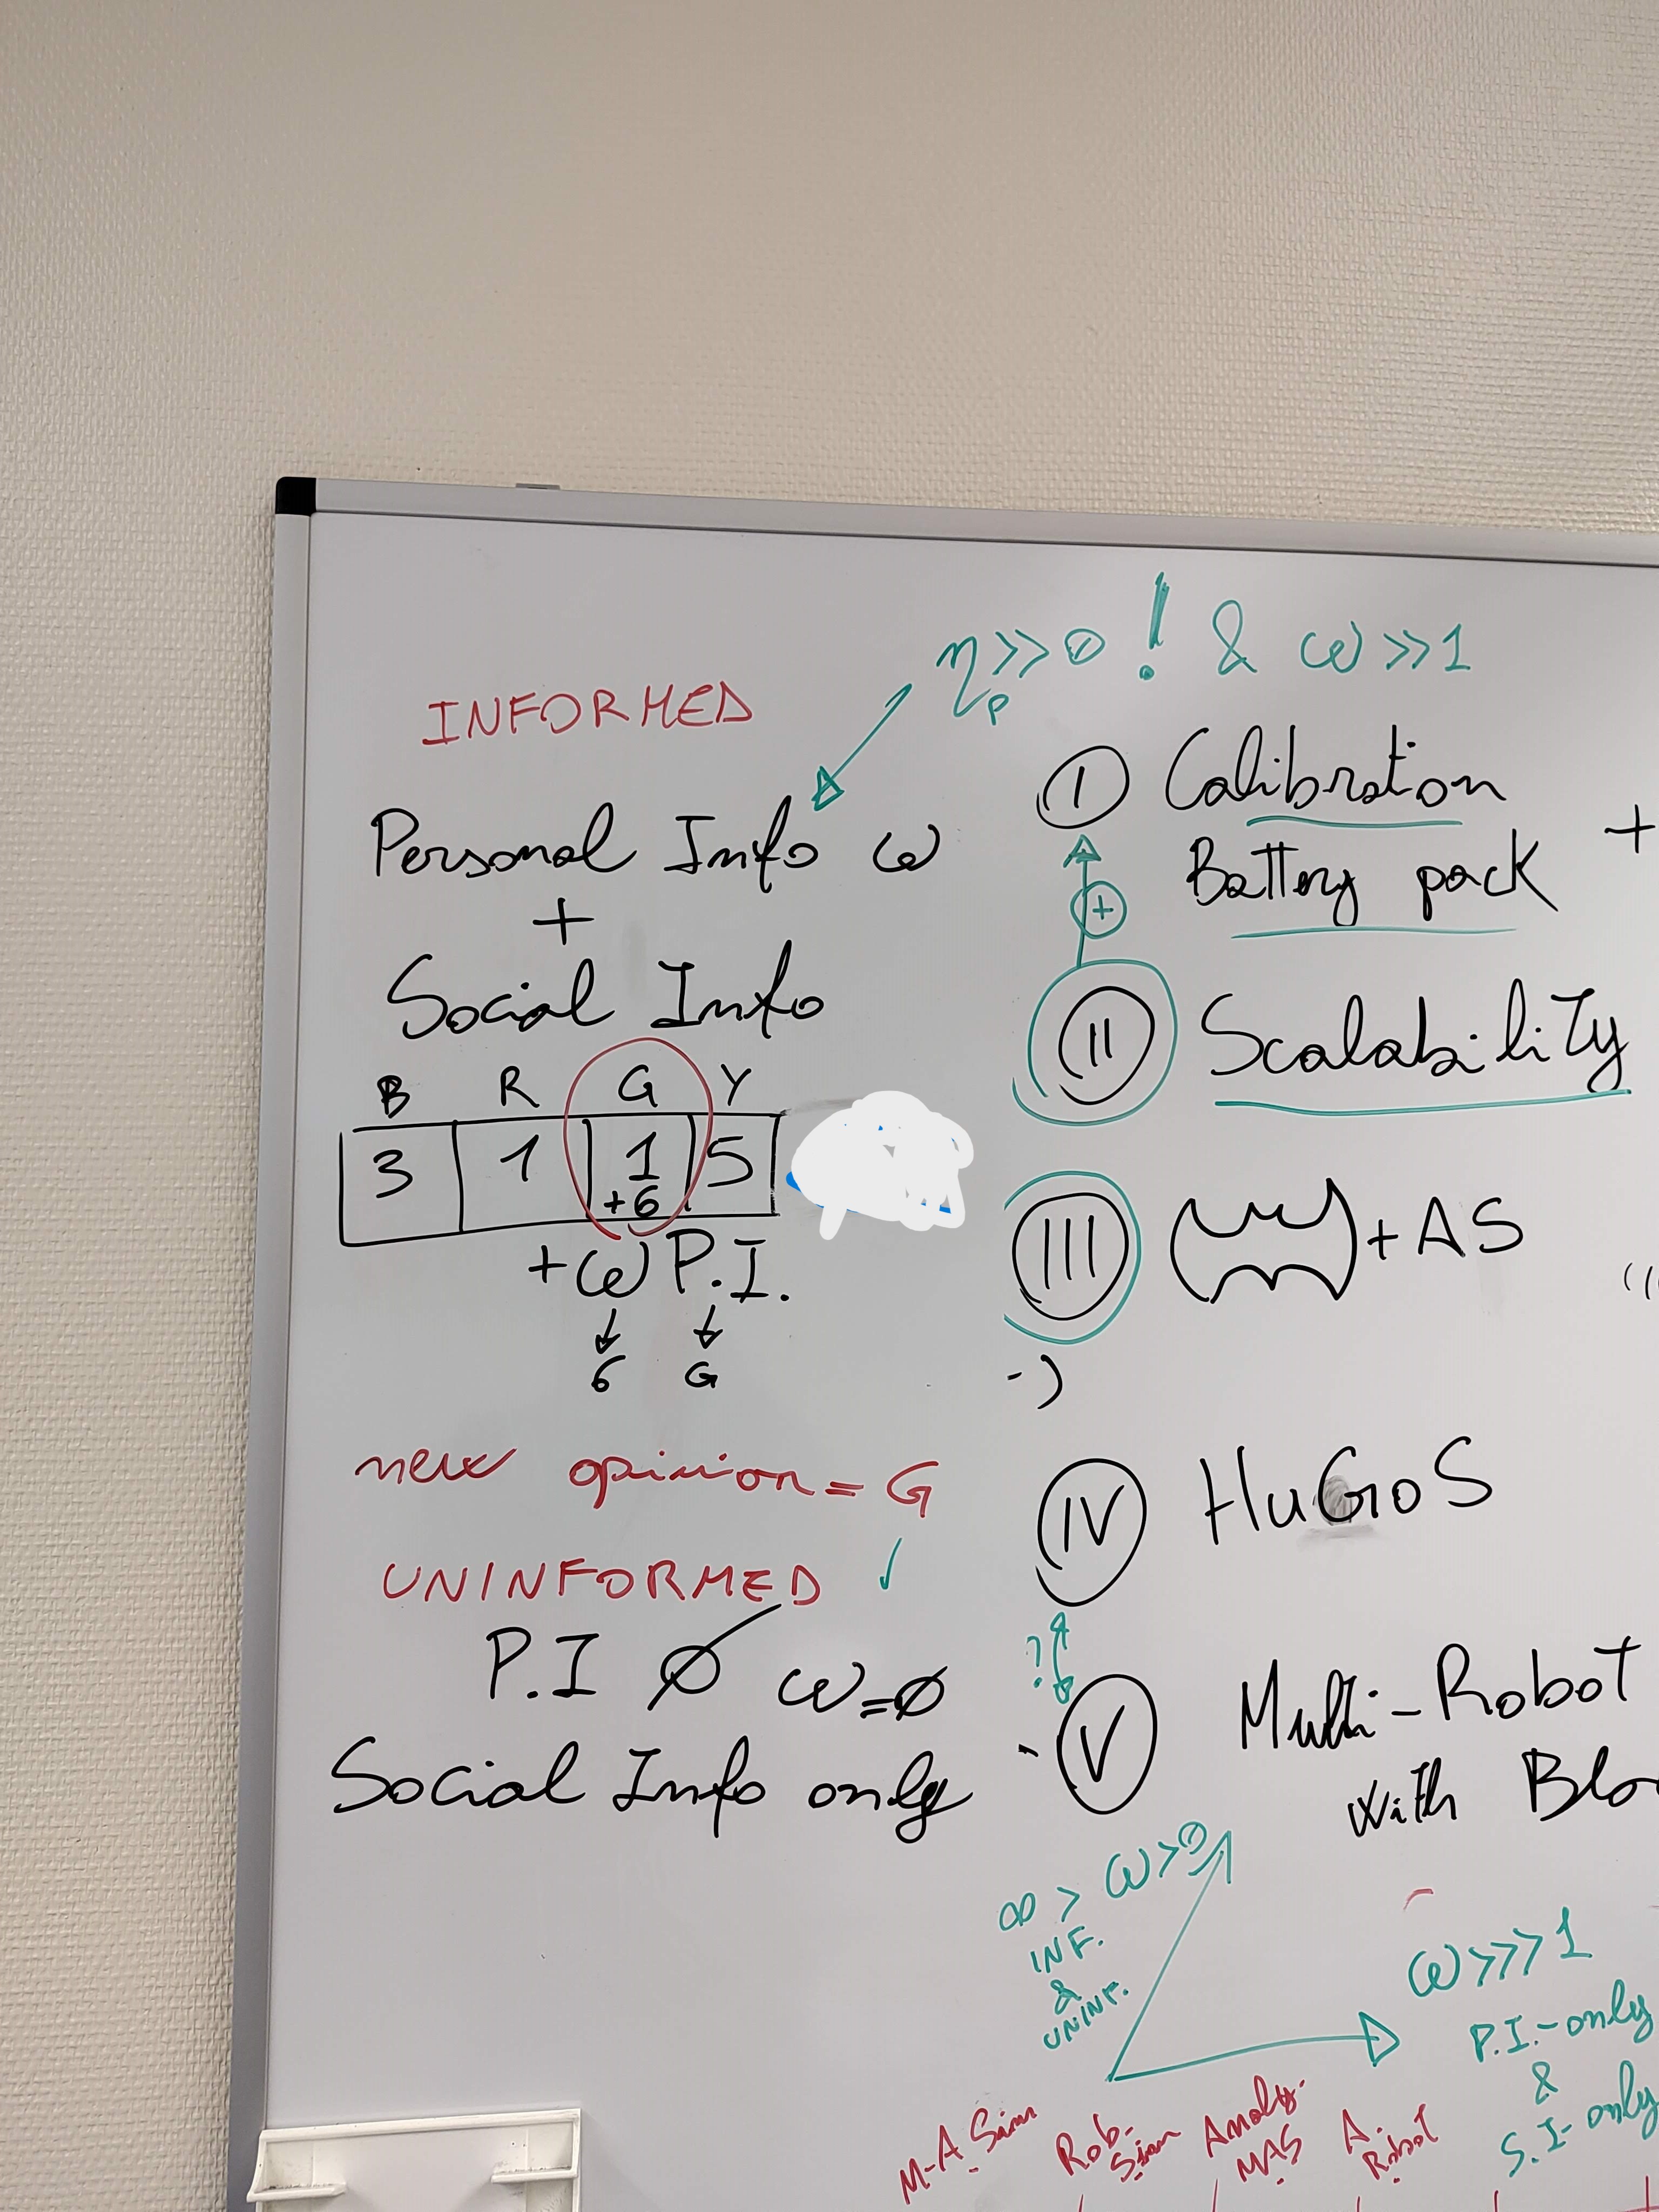 η_p >> 0 ! & ω >> 1
INFORMED
Personal Info ω
+
Social Info
B R G Y
3 1 1 5
+6
+ω P.I.
↓ ↓
6 G
new opinion = G
UNINFORMED ✓
P.I ∅ ω=∅
Social Info only
I Calibration +
Battery pack
+
II Scalability
III + AS
IV HuGoS
?
V Multi-Robot
with Blo
∞ > ω > 0
INF.
&
UNINF.
ω >>> 1
P.I.-only
&
S.I-only
M-A Sim
Rob. Sim
Analy. MAS
A. Robot